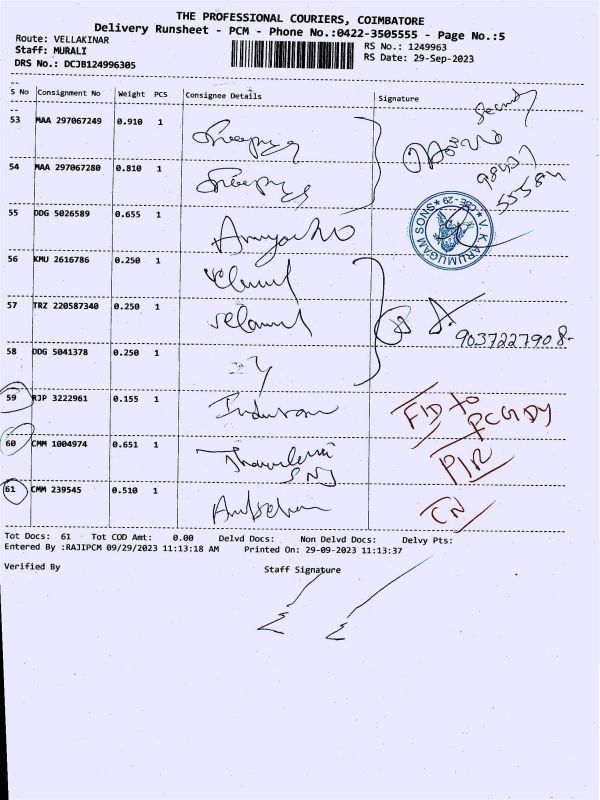 THE PROFESSIONAL COURIERS, COIMBATORE
Delivery Runsheet - PCM - Phone No.:0422-3505555 - Page No.:5
Route: VELLAKINAR
RS No.: 1249963
Staff: MURALI
RS Date: 29-Sep-2023
DRS No.: DCJB124996305
S No Consignment No Weight PCS Consignee Details Signature
53 MAA 297067249 0.910 1
54 MAA 297067280 0.810 1
55 DDG 5026589 0.655 1
V. K. ARUMUGAM SONS ★ CBE - 29 ★
56 KMU 2616786 0.250 1
57 TRZ 220587340 0.250 1
9037227908-
58 DDG 5041378 0.250 1
59 RJP 3222961 0.155 1
60 CMM 1004974 0.651 1
61 CMM 239545 0.510 1
Tot Docs: 61 Tot COD Amt: 0.00 Delvd Docs: Non Delvd Docs: Delvy Pts:
Entered By :RAJIPCM 09/29/2023 11:13:18 AM Printed On: 29-09-2023 11:13:37
Verified By Staff Signature